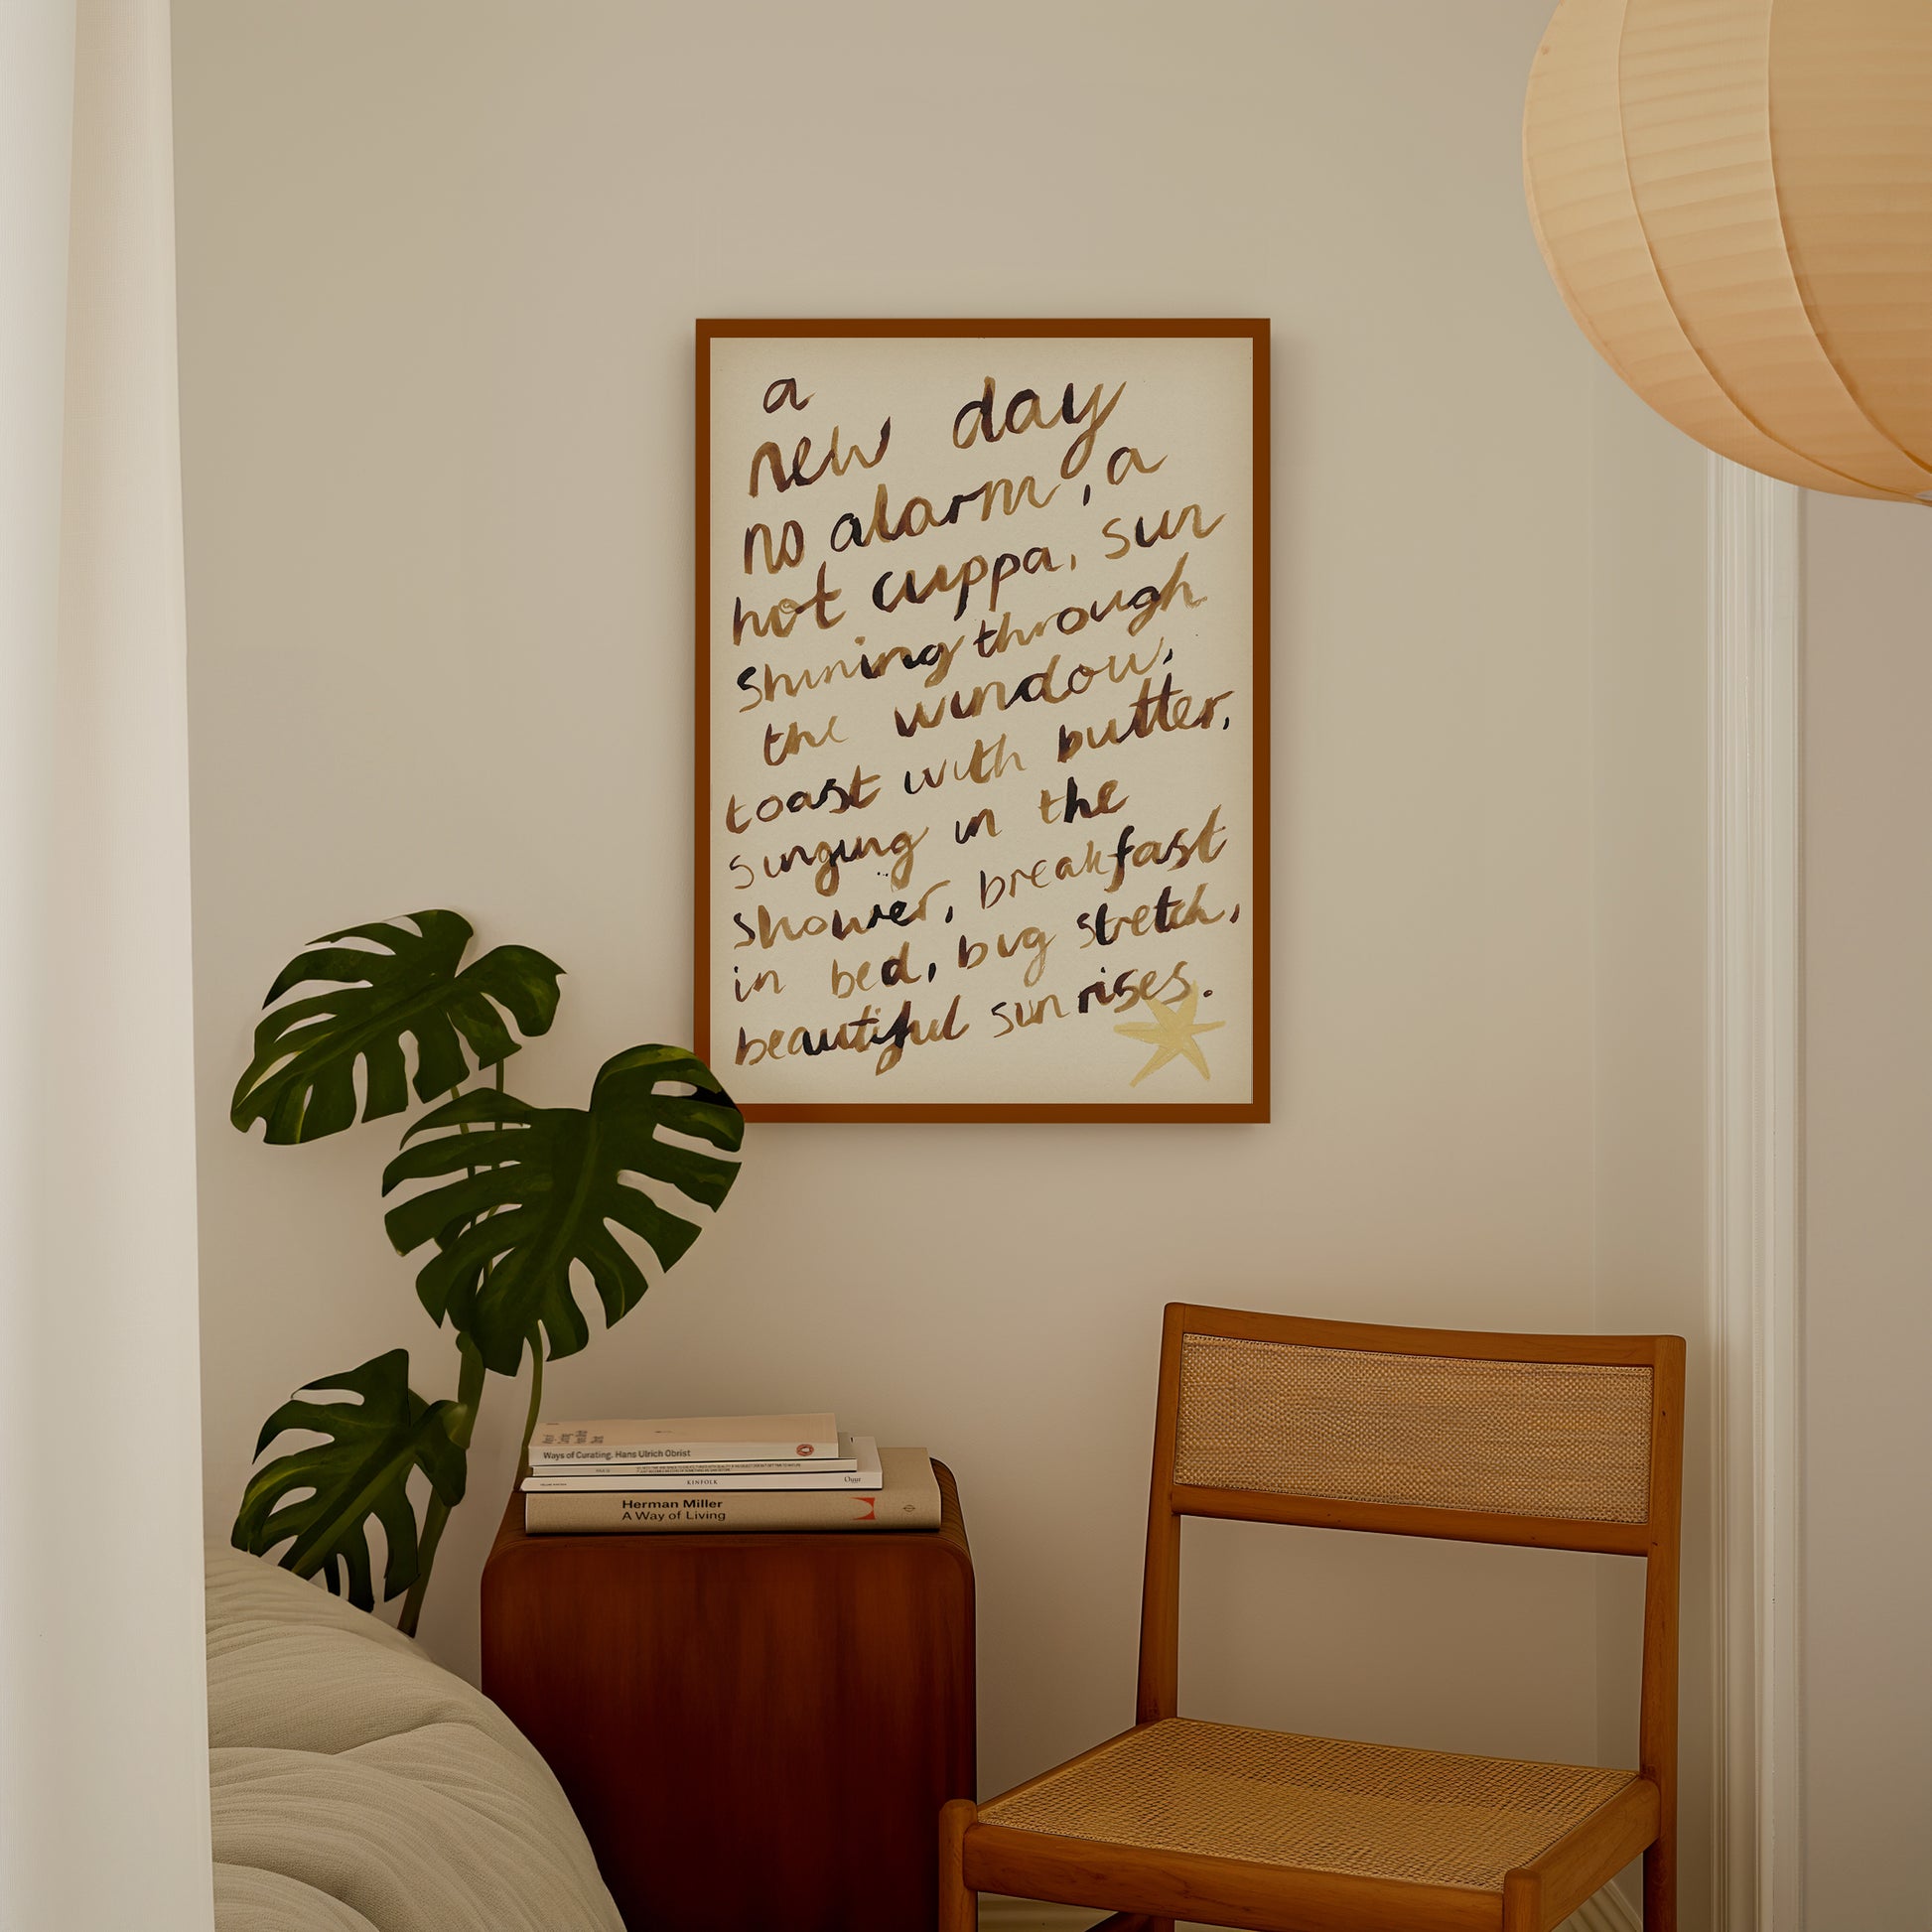 a
new day
no alarm, a
hot cuppa, sun
shining through
the window,
toast with butter,
singing in the
shower, breakfast
in bed, big stretch,
beautiful sunrises.
Ways of Curating, Hans Ulrich Obrist
KINFOLK
Herman Miller
A Way of Living